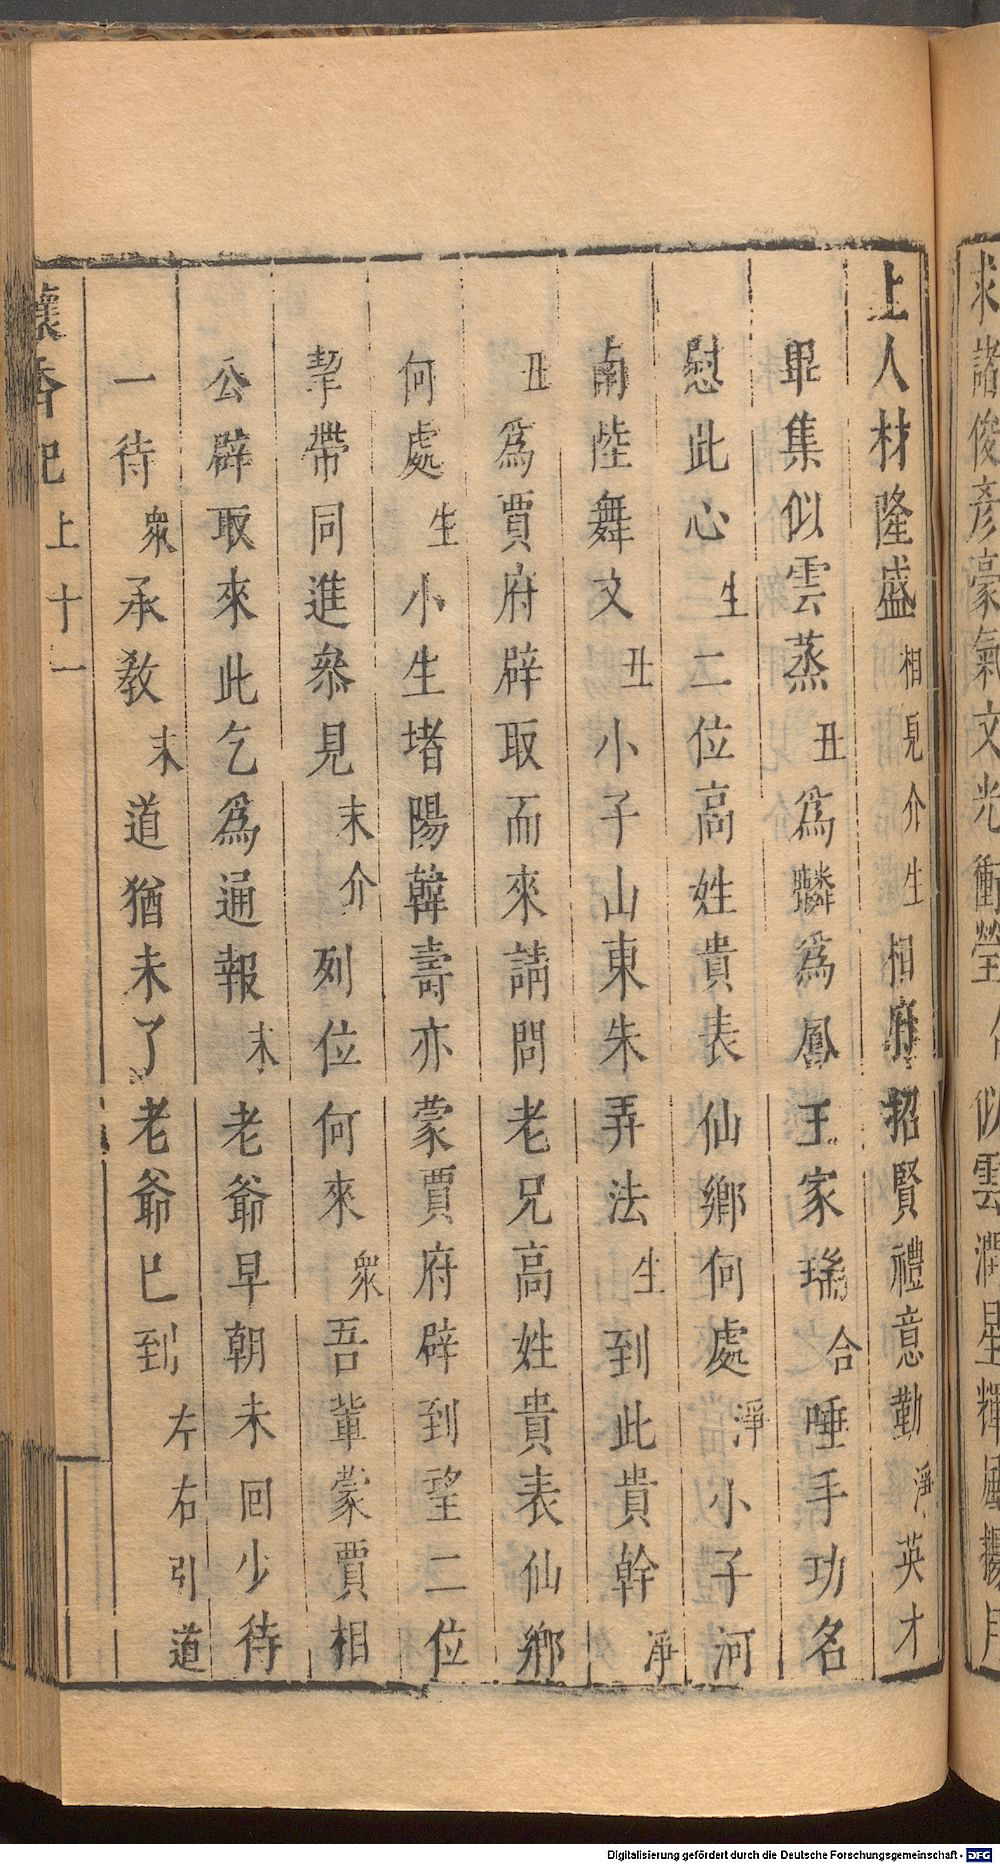 求諸俊彦豪氣文光衝瑩 似雲潤星輝風揚月
上人材隆盛相見介生相府招賢禮意勤淨英才
畢集似雲蒸丑爲麟爲鳳王家瑞合唾手功名
慰此心生二位高姓貴表仙鄉何處淨小子河
南陸舞文丑小子山東朱弄法生到此貴幹淨
丑爲賈府辟取而來請問老兄高姓貴表仙鄉
何處生小生堵陽韓壽亦蒙賈府辟到望二位
挈帶同進叅見末介列位何來衆吾輩蒙賈相
公辟取來此乞爲通報末老爺早朝未回少待
一待衆承敎末道猶未了老爺已到左右引道
懷香記 上 十一
Digitalisierung gefördert durch die Deutsche Forschungsgemeinschaft - DFG